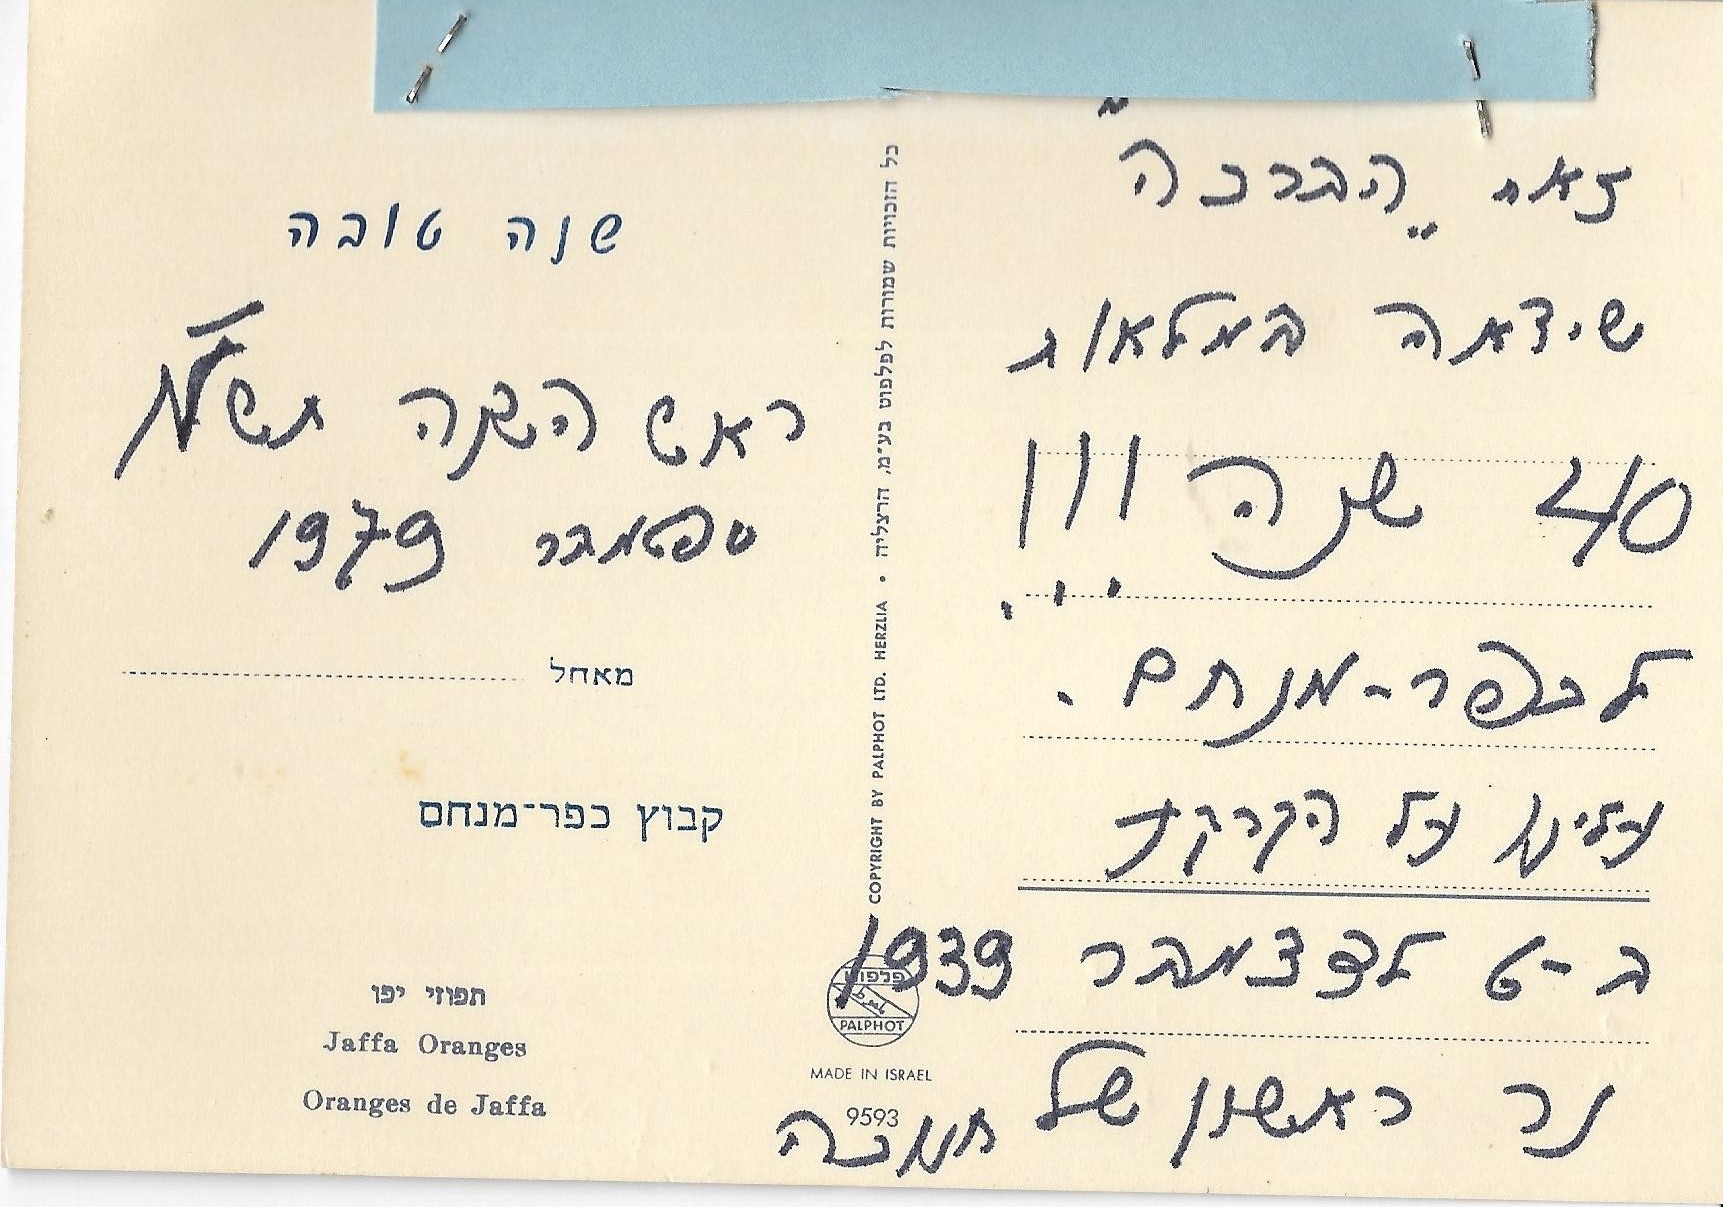 זאת „הברכה"
שיצאה במלאות
40 שנה !!!
לכפר-מנחם.
עלינו על הקרקע
ב-6 לדצמבר 1939
נר ראשון של חנוכה
COPYRIGHT BY PALPHOT LTD. HERZLIA • כל הזכויות שמורות לפלפוט בע"מ, הרצליה
פלפוט
PALPHOT
MADE IN ISRAEL
9593
שנה טובה
ראש השנה תש"מ
ספטמבר 1979
מאחל
קבוץ כפר-מנחם
תפוזי יפו
Jaffa Oranges
Oranges de Jaffa